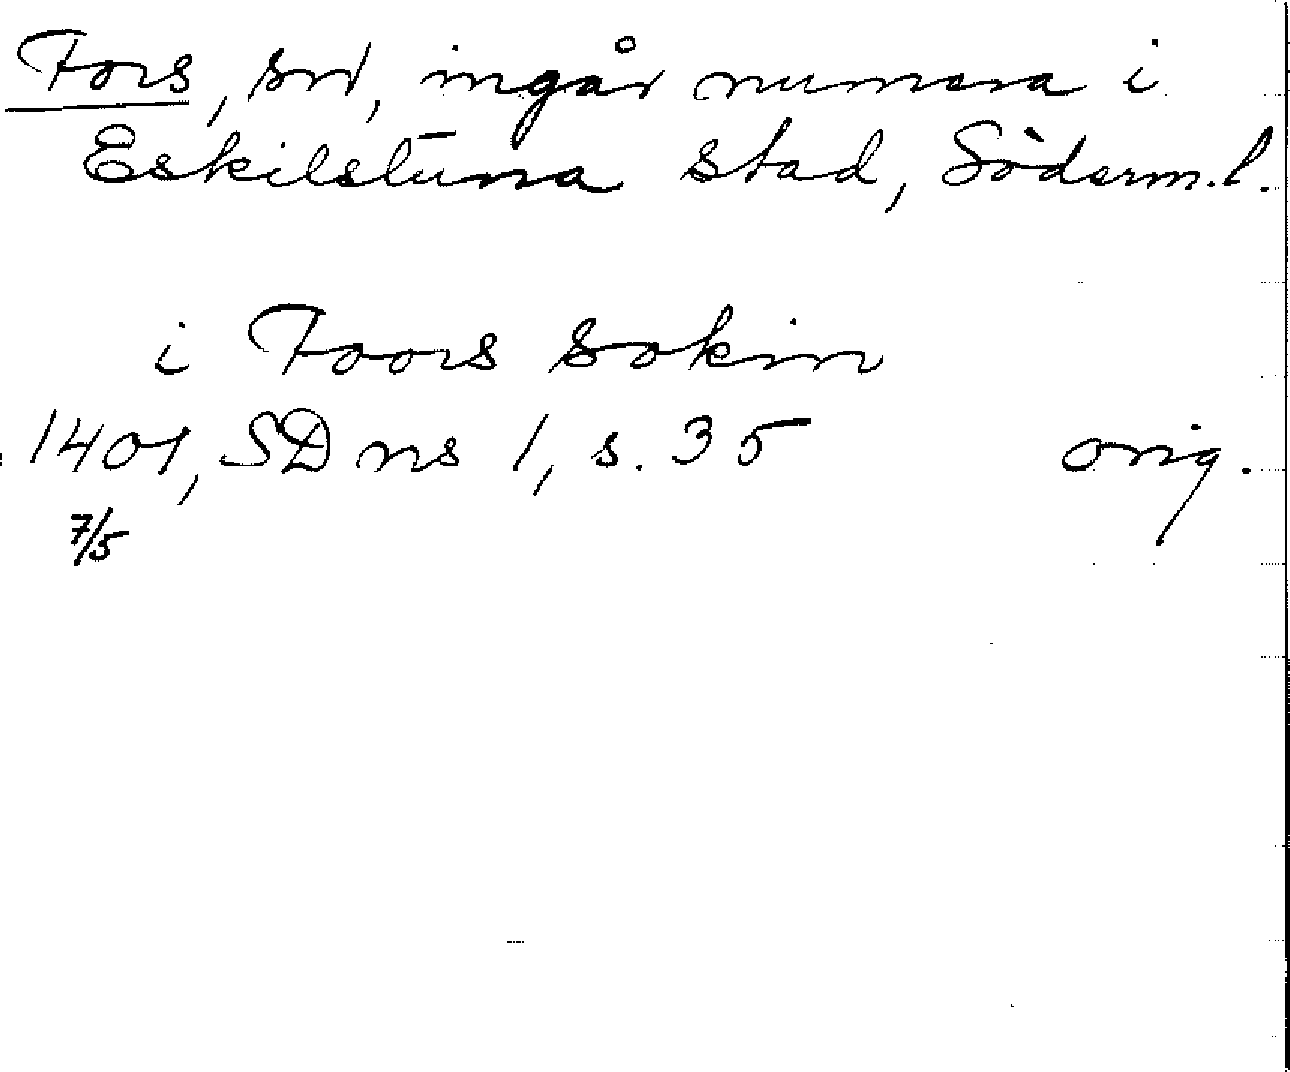 Fors, snl, ingår numera i
Eskilstuna stad, Söderm.l.
i Foors sokin
1401, SD ns 1, s. 35 orig.
7/5